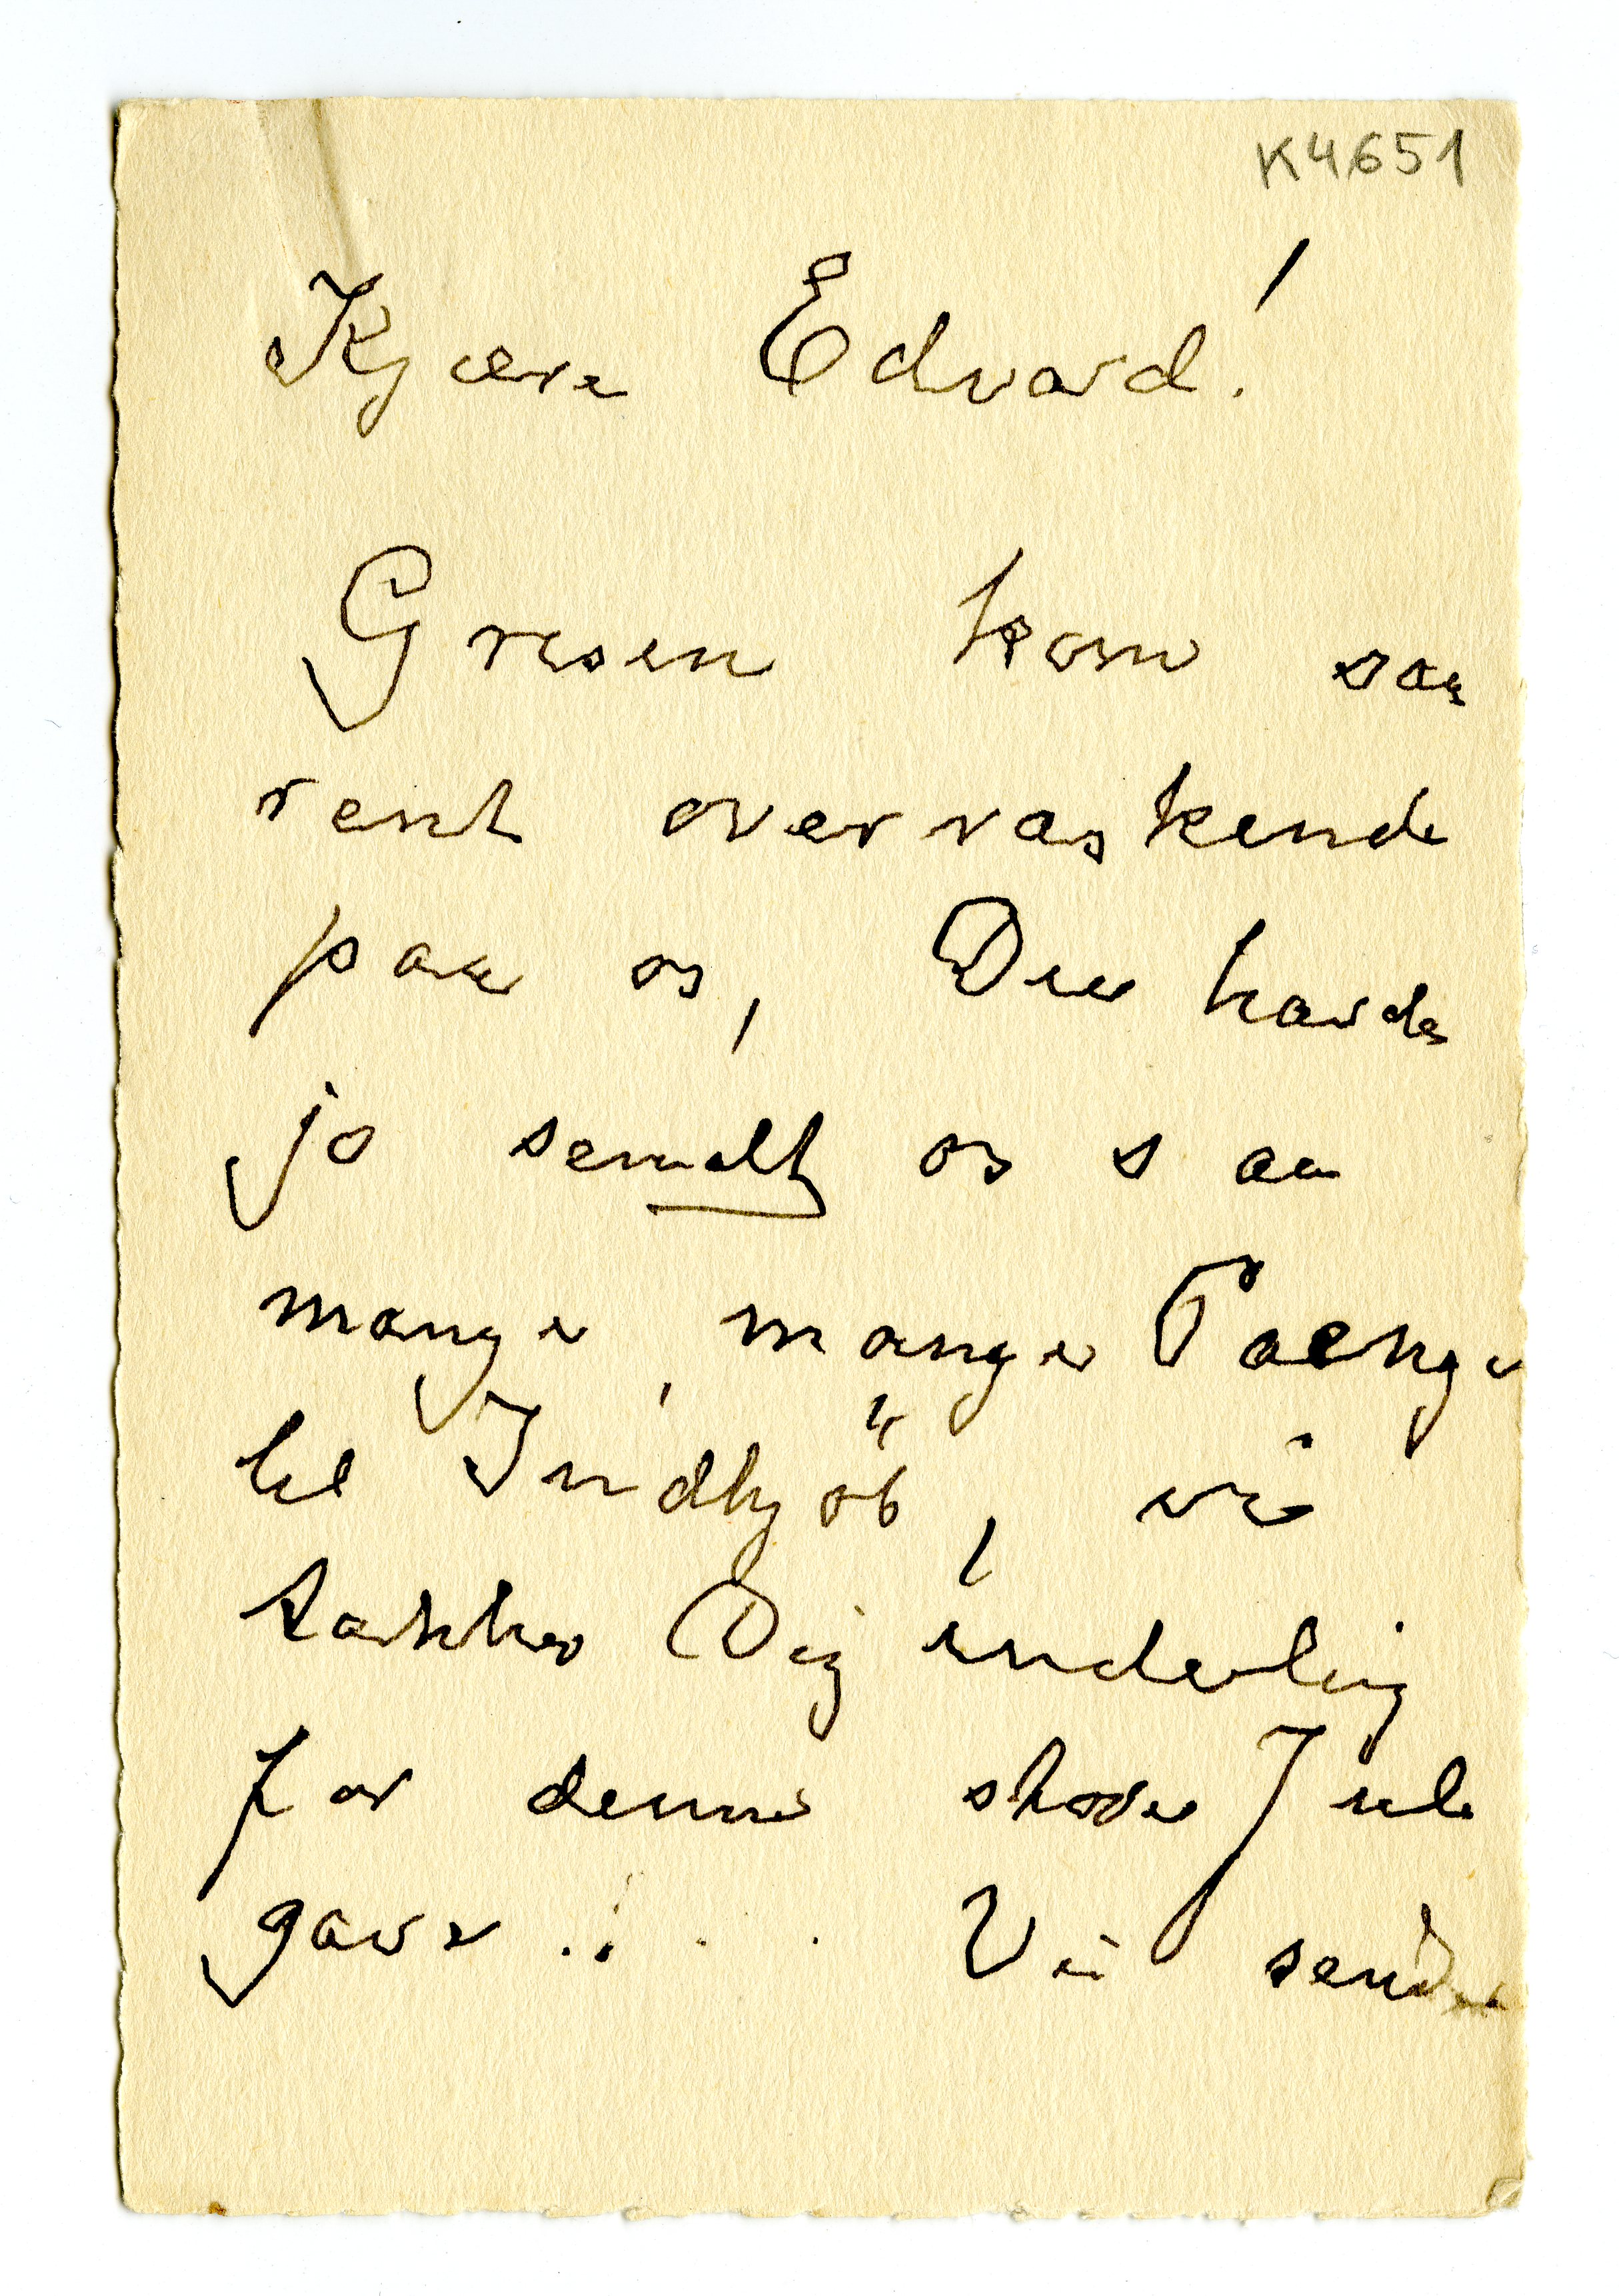 K4651
Kjære Edvard!
Grisen kom saa
rent overraskende
paa os, Du havde
jo sendt os saa
mange, mange Pænge
til Indkjöb, vi
takker Dig inderlig
for denne store Jule
gave.! Vi sender